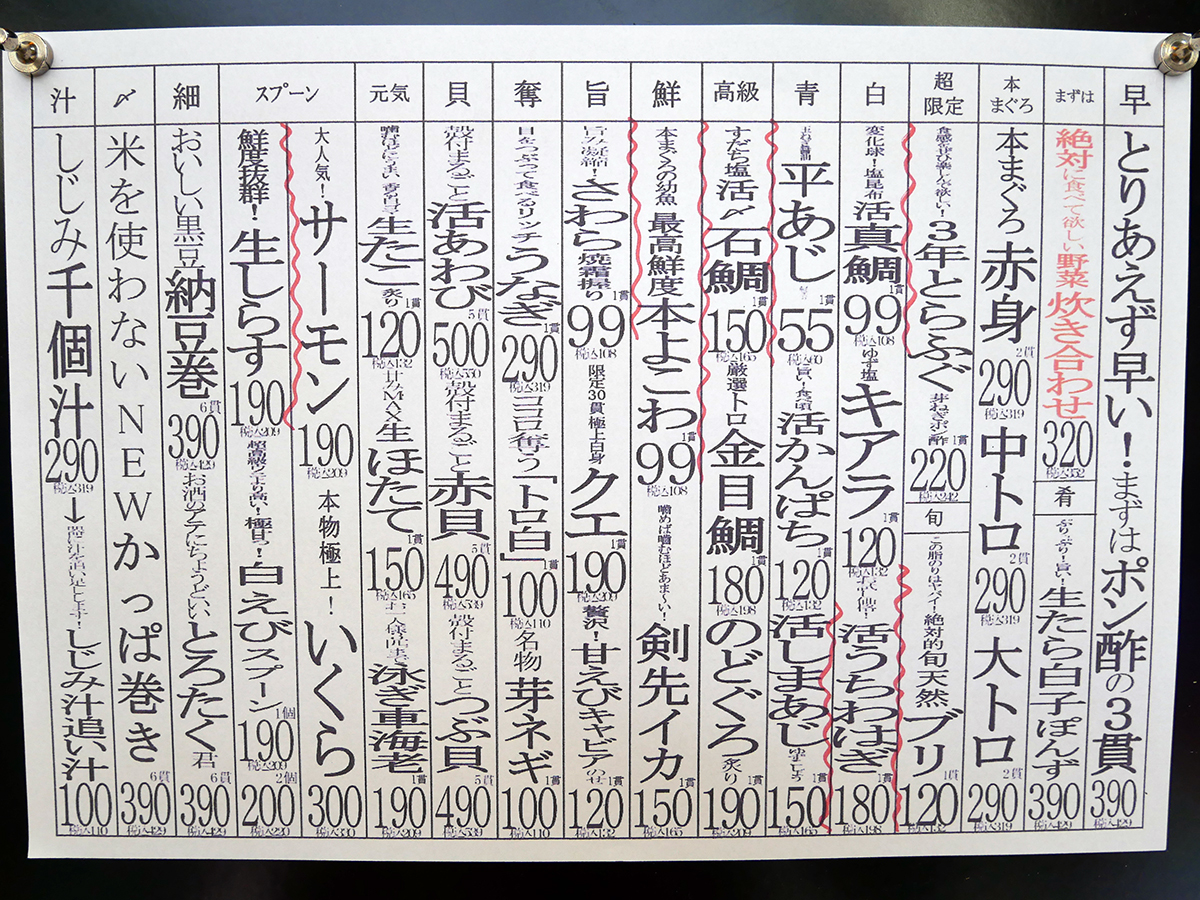 早
とりあえず早い！まずはポン酢の3貫
390
税込429
まずは
絶対に食べて欲しい野菜 炊き合わせ
320
税込352
肴
ぷりっぷり！旨い！生たら白子ぽんず
390
税込429
本まぐろ
本まぐろ 赤身
2貫
290
税込319
中トロ
2貫
290
税込319
大トロ
2貫
290
税込319
超限定
食感をぜひ楽しんで欲しい！3年とらふぐ 芽ねぎポン酢
1貫
220
税込242
旬
この脂のりはヤバイ！絶対的旬 天然ブリ
1貫
120
税込132
白
変化球！塩昆布 活真鯛
1貫
99
税込108
ゆず塩 キアラ
1貫
120
税込132
活うちわはぎ
1貫
180
税込198
青
玉ねぎ醤油 平あじ
55
税込60
旨い！食べ頃 活かんぱち
1貫
120
税込132
活しまあじ ゆずこしょう
1貫
150
税込165
高級
すだち塩 活〆石鯛
1貫
150
税込165
厳選トロ 金目鯛
1貫
180
税込198
のどぐろ 炙り
1貫
190
税込209
鮮
本まぐろの幼魚 最高鮮度 本よこわ
1貫
99
税込108
噛めば噛むほどあま〜い！剣先イカ
1貫
150
税込165
旨
旨み凝縮！さわら 焼霜握り
1貫
99
税込108
限定30貫 極上白身 クエ
1貫
190
税込209
贅沢！甘えびキャビアのせ
1貫
120
税込132
奪
目をつぶって食べるリッチうなぎ
1貫
290
税込319
ココロ奪う「トロ白」
1貫
100
税込110
名物 芽ネギ
1貫
100
税込110
貝
殻付まるごと 活あわび
5貫
500
税込550
殻付まるごと 赤貝
5貫
490
税込539
殻付まるごと つぶ貝
5貫
490
税込539
元気
生たこ 炙り
1貫
120
税込132
甘みMAX 生ほたて
1貫
150
税込165
泳ぎ車海老
1貫
190
税込209
スプーン
大人気！サーモン
190
税込209
本物極上！いくら
300
税込330
鮮度抜群！生しらす
190
税込209
極甘っ！白えびスプーン
1個
190
税込209
2個
200
税込220
細
おいしい黒豆 納豆巻
6貫
390
税込429
お酒のアテにちょうどいい、とろたく君
6貫
390
税込429
〆
米を使わないNEWかっぱ巻き
6貫
390
税込429
汁
しじみ千個汁
290
税込319
→
器に汁を追い足しします！しじみ汁追い汁
100
税込110